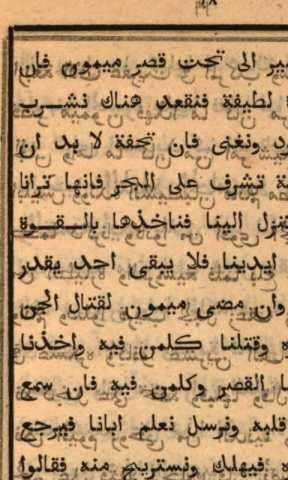 ١٨
الى تحت قصر ميمون فان
لطيفة فنقعد هناك نشرب
ونغنى فان تحفة لا بد ان
تشرف على البحر فانها ترانا
الينا فناخذها بالقوة
ايدينا فلا يبقى احد يقدر
وان مضى ميمون لقتال الجن
وقتلنا كلمن فيه واخذنا
القصر وكلمن فيه فان سمع
قلبه ونرسل نعلم ابانا فيرجع
فيهلك ونستريح منه فقالوا